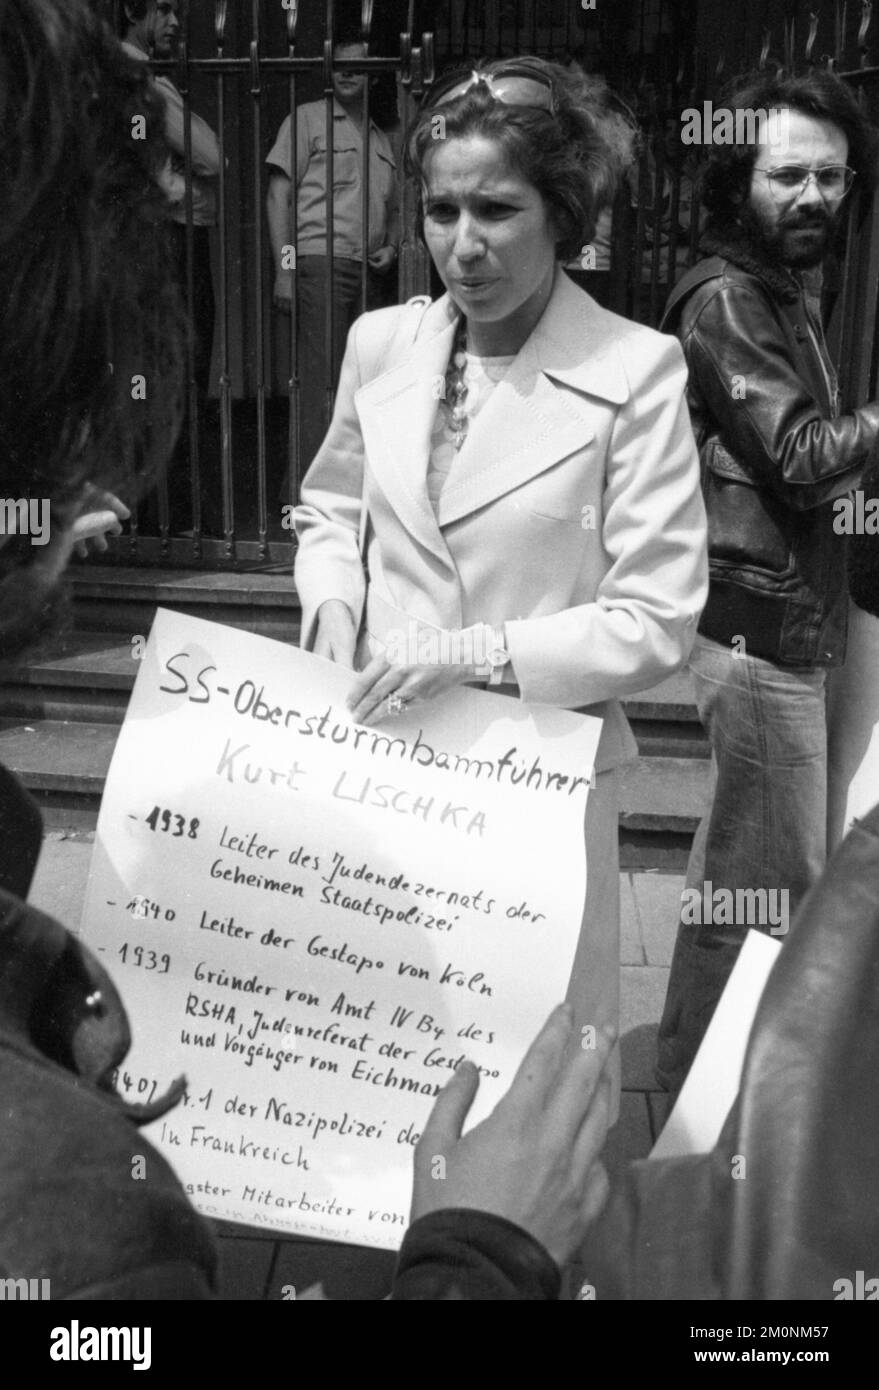 SS-Obersturmbannführer
Kurt LISCHKA
- 1938 Leiter des Judendezernats der
Geheimen Staatspolizei
- 1940 Leiter der Gestapo von Köln
- 1939 Gründer von Amt IV B4 des
RSHA, Judenreferat der Gestapo
und Vorgänger von Eichman
940 r.1 der Nazipolizei de
In Frankreich
gster Mitarbeiter von
alamy
Image ID: 2M0NM57
www.alamy.com